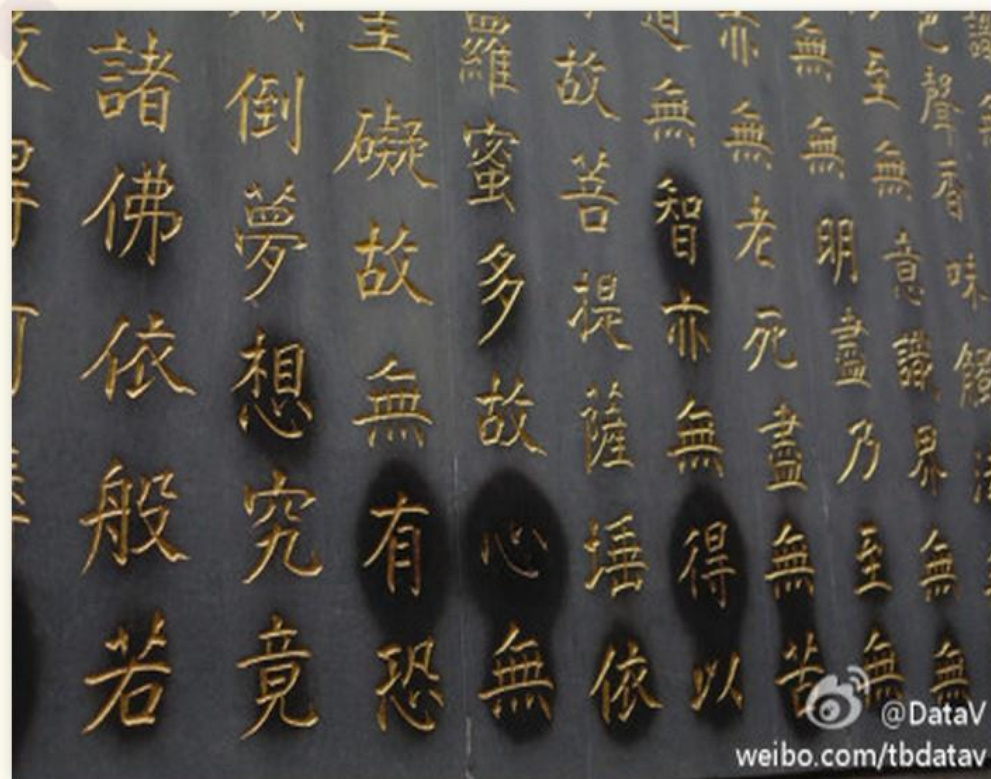 色聲香味觸
至無意識界無無
無無明盡乃至無
亦無老死盡無苦
道無智亦無得以
故菩提薩埵依
羅蜜多故心無
礙故無有恐
倒夢想究竟
諸佛依般若
@DataV
weibo.com/tbdatav